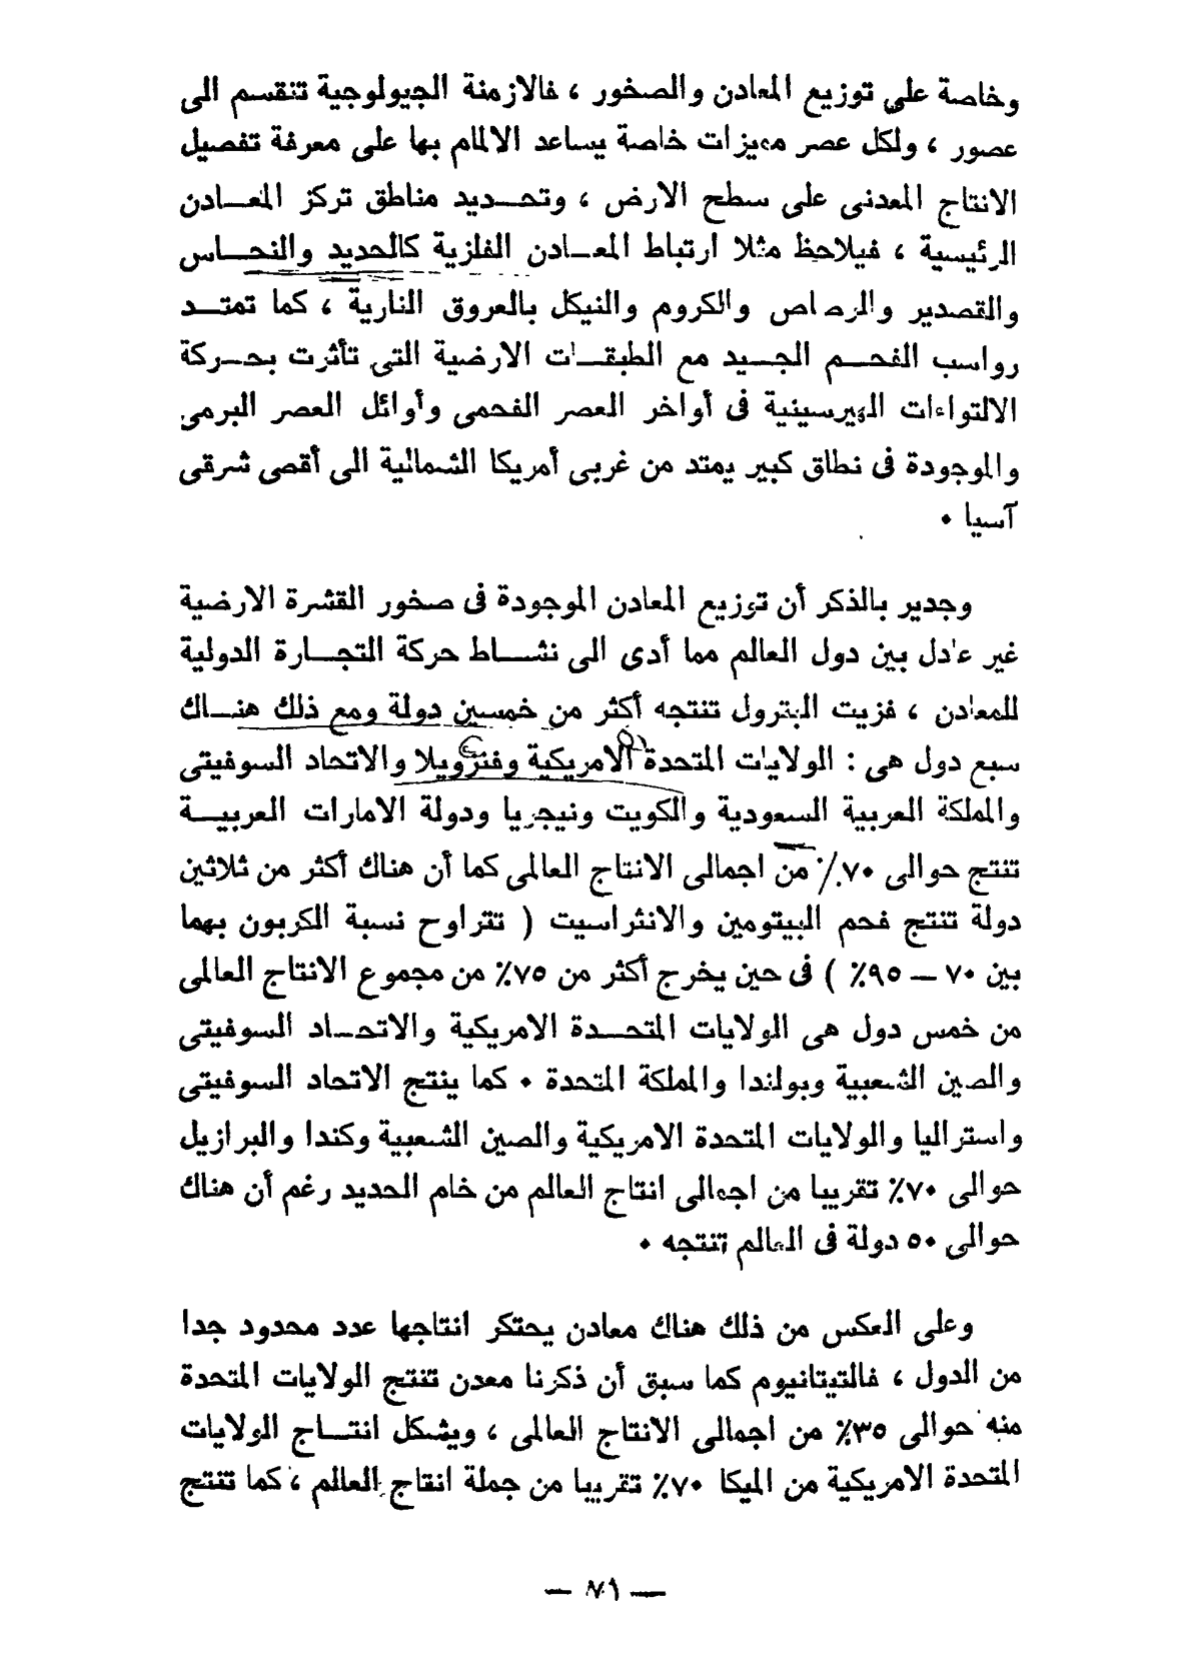 وخاصة على توزيع المعادن والصخور ، فالازمنة الجيولوجية تنقسم الى
عصور ، ولكل عصر مميزات خاصة يساعد الالمام بها على معرفة تفصيل
الانتاج المعدنى على سطح الارض ، وتحــديد مناطق تركز المعــادن
الرئيسية ، فيلاحظ مثلا ارتباط المعــادن الفلزية كالحديد والنحــاس
والقصدير والرصاص والكروم والنيكل بالعروق النارية ، كما تمتــد
رواسب الفحــم الجــيد مع الطبقــات الارضية التى تأثرت بحــركة
الالتواءات الهيرسينية فى أواخر العصر الفحمى وأوائل العصر البرمى
والموجودة فى نطاق كبير يمتد من غربى أمريكا الشمالية الى أقصى شرقى
آسيا ٠
وجدير بالذكر أن توزيع المعادن الموجودة فى صخور القشرة الارضية
غير عادل بين دول العالم مما أدى الى نشــاط حركة التجــارة الدولية
للمعادن ، فزيت البترول تنتجه أكثر من خمسين دولة ومع ذلك هنــاك
سبع دول هى : الولايات المتحدة الامريكية وفنزويلا والاتحاد السوفيتى
والمملكة العربية السعودية والكويت ونيجريا ودولة الامارات العربيــة
تنتج حوالى ٧٠٪ من اجمالى الانتاج العالمى كما أن هناك أكثر من ثلاثين
دولة تنتج فحم البيتومين والانثراسيت ( تتراوح نسبة الكربون بهما
بين ٧٠ — ٩٥٪ ) فى حين يخرج أكثر من ٧٥٪ من مجموع الانتاج العالمى
من خمس دول هى الولايات المتحــدة الامريكية والاتحــاد السوفيتى
والصين الشعبية وبولندا والمملكة المتحدة ٠ كما ينتج الاتحاد السوفيتى
واستراليا والولايات المتحدة الامريكية والصين الشعبية وكندا والبرازيل
حوالى ٧٠٪ تقريبا من اجمالى انتاج العالم من خام الحديد رغم أن هناك
حوالى ٥٠ دولة فى العالم تنتجه ٠
وعلى العكس من ذلك هناك معادن يحتكر انتاجها عدد محدود جدا
من الدول ، فالتيتانيوم كما سبق أن ذكرنا معدن تنتج الولايات المتحدة
منه حوالى ٣٥٪ من اجمالى الانتاج العالمى ، ويشكل انتــاج الولايات
المتحدة الامريكية من الميكا ٧٠٪ تقريبا من جملة انتاج العالم ، كما تنتج
— ٧١ —